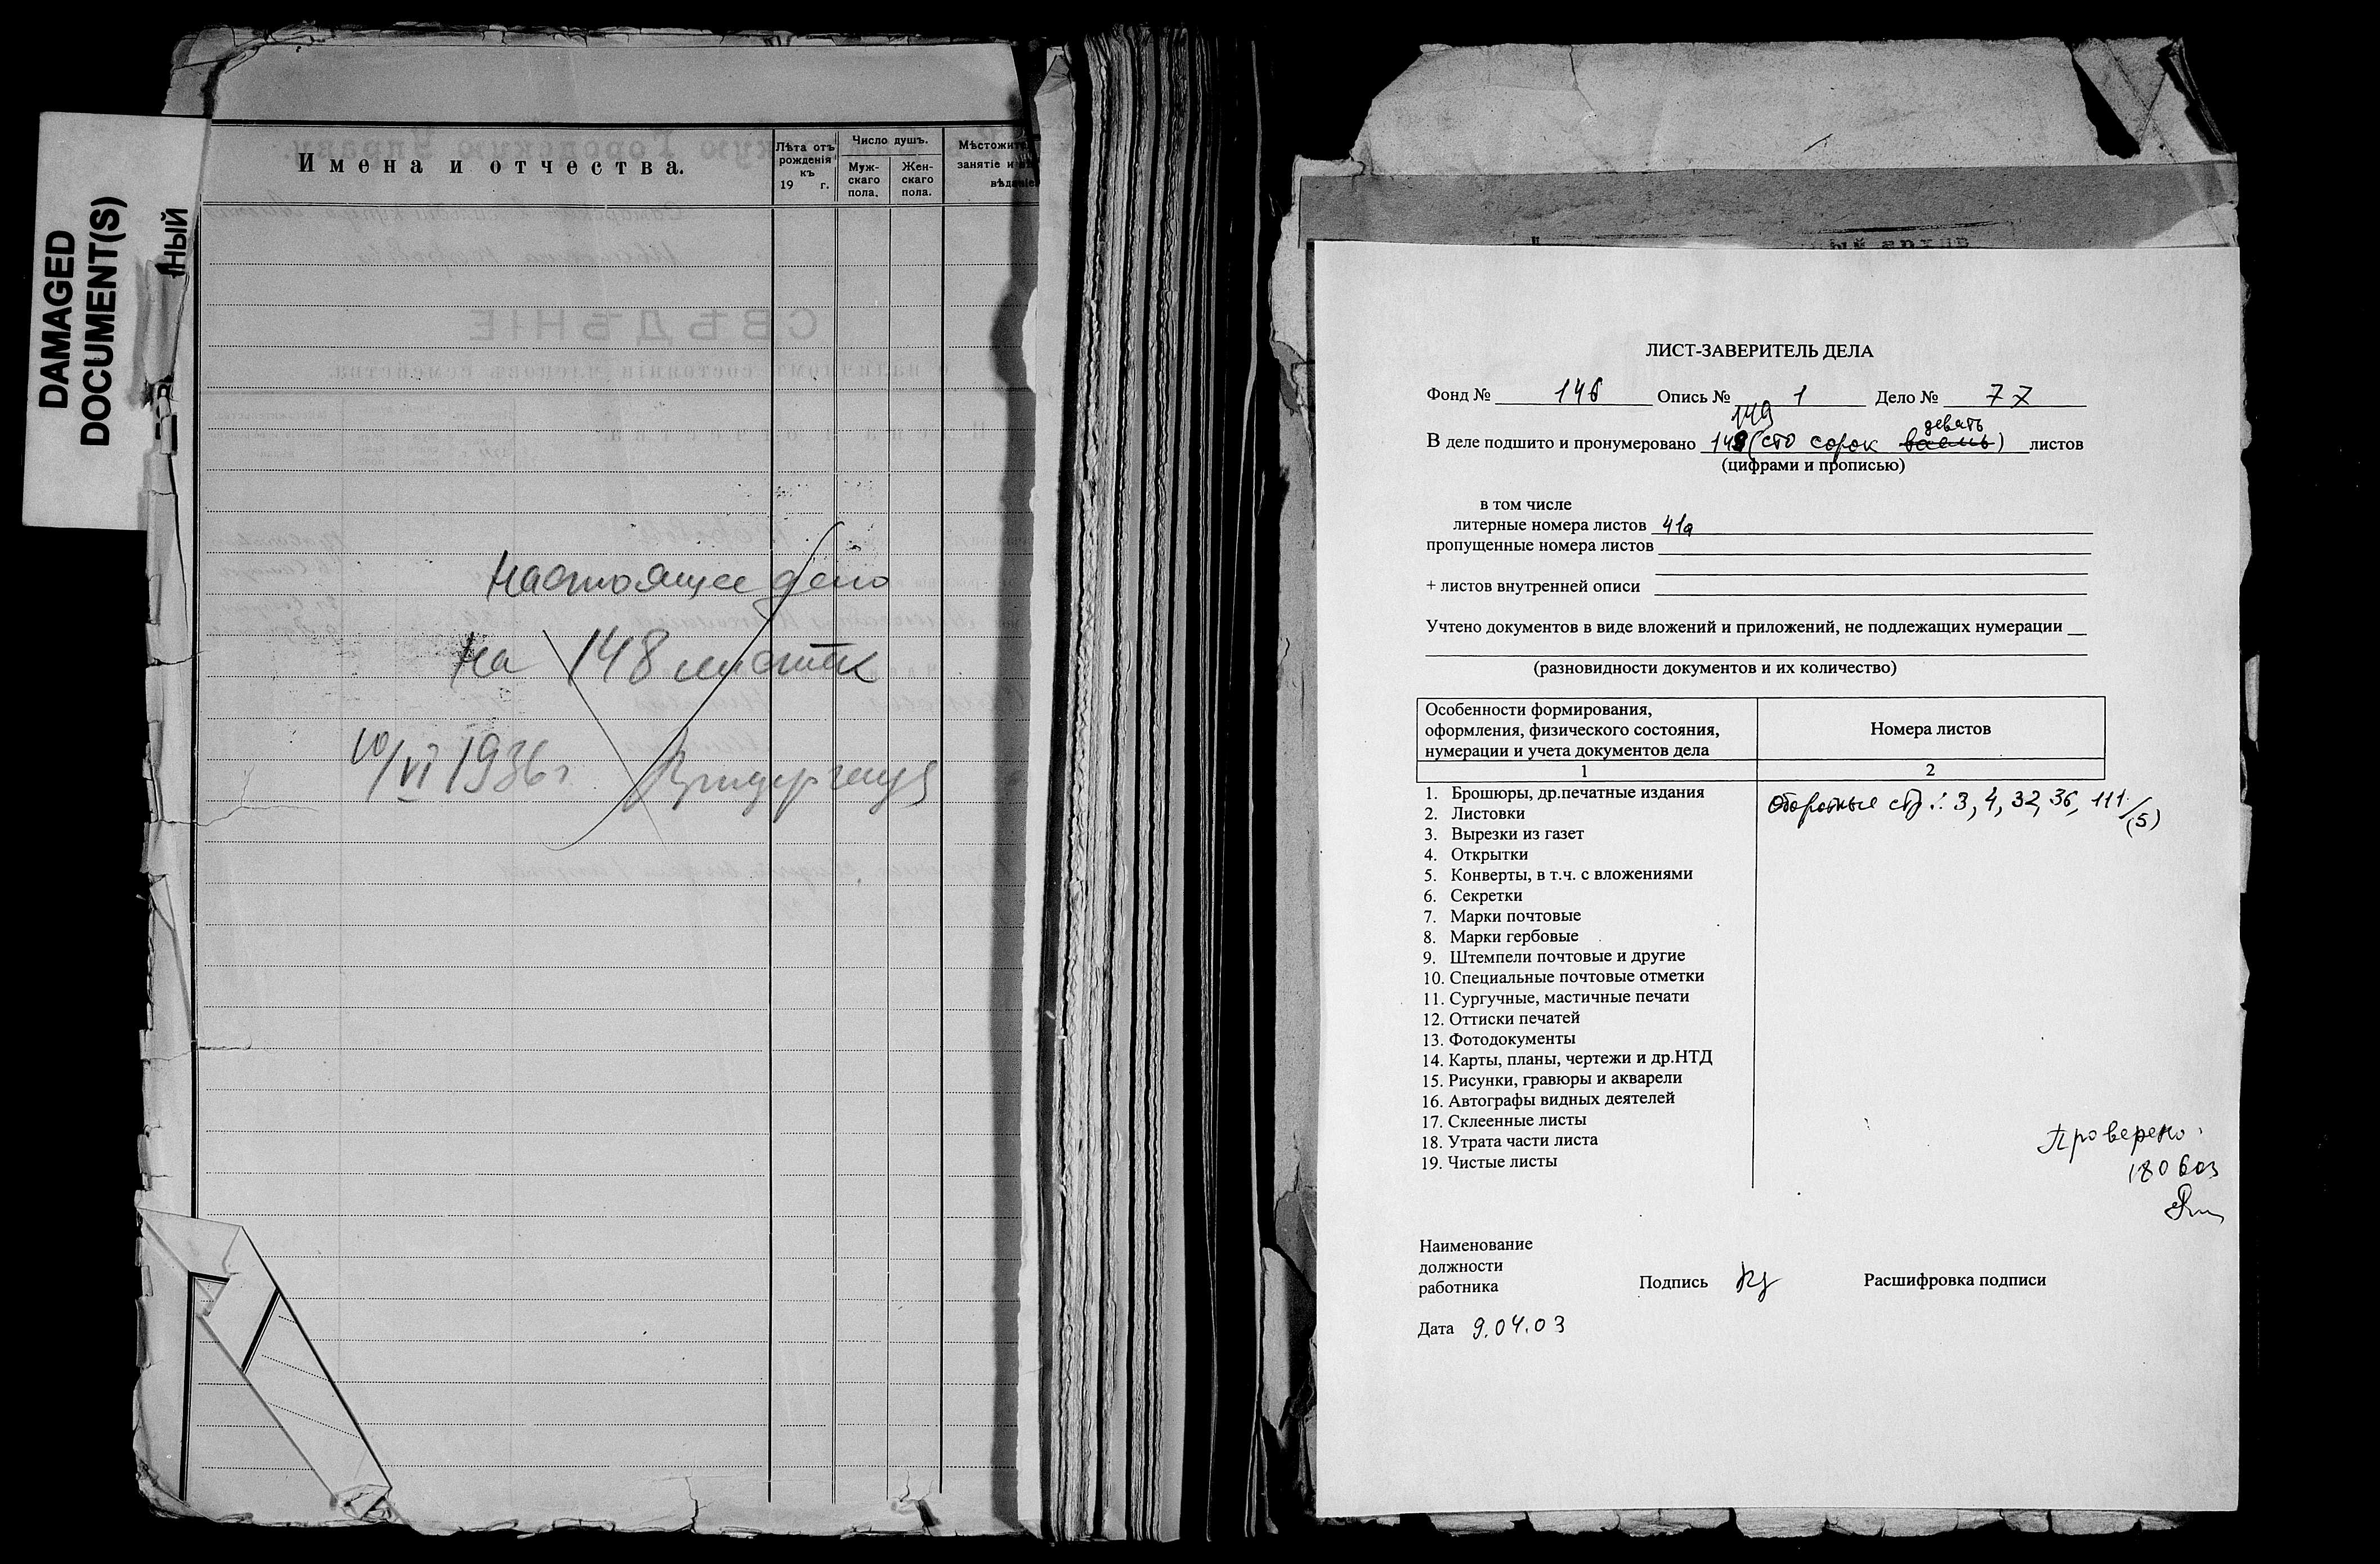 DAMAGED
DOCUMENT(S)
НЫЙ
Имена и отчества.
Лѣта отъ
рожденія
къ
19 г.
Число душъ.
Муж-
скаго
пола.
Жен-
скаго
пола.
занятіе и
СВѢДѢНІЕ
Настоящее дело
на 148 листах
10/VI 1936 г
ЛИСТ-ЗАВЕРИТЕЛЬ ДЕЛА
Фонд № 146 Опись № 1 Дело № 77
149 девать
В деле подшито и пронумеровано 148 (сто сорок восемь) листов
(цифрами и прописью)
в том числе
литерные номера листов 41а
пропущенные номера листов
+ листов внутренней описи
Учтено документов в виде вложений и приложений, не подлежащих нумерации
(разновидности документов и их количество)
Особенности формирования,
оформления, физического состояния,
нумерации и учета документов дела
Номера листов
1 2
1. Брошюры, др.печатные издания
Оборотные стр.: 3, 4, 32, 36, 111 / (5)
2. Листовки
3. Вырезки из газет
4. Открытки
5. Конверты, в т.ч. с вложениями
6. Секретки
7. Марки почтовые
8. Марки гербовые
9. Штемпели почтовые и другие
10. Специальные почтовые отметки
11. Сургучные, мастичные печати
12. Оттиски печатей
13. Фотодокументы
14. Карты, планы, чертежи и др.НТД
15. Рисунки, гравюры и акварели
16. Автографы видных деятелей
17. Склеенные листы
18. Утрата части листа
19. Чистые листы
Проверено:
180603
Наименование
должности
работника
Подпись
Расшифровка подписи
Дата 9.04.03